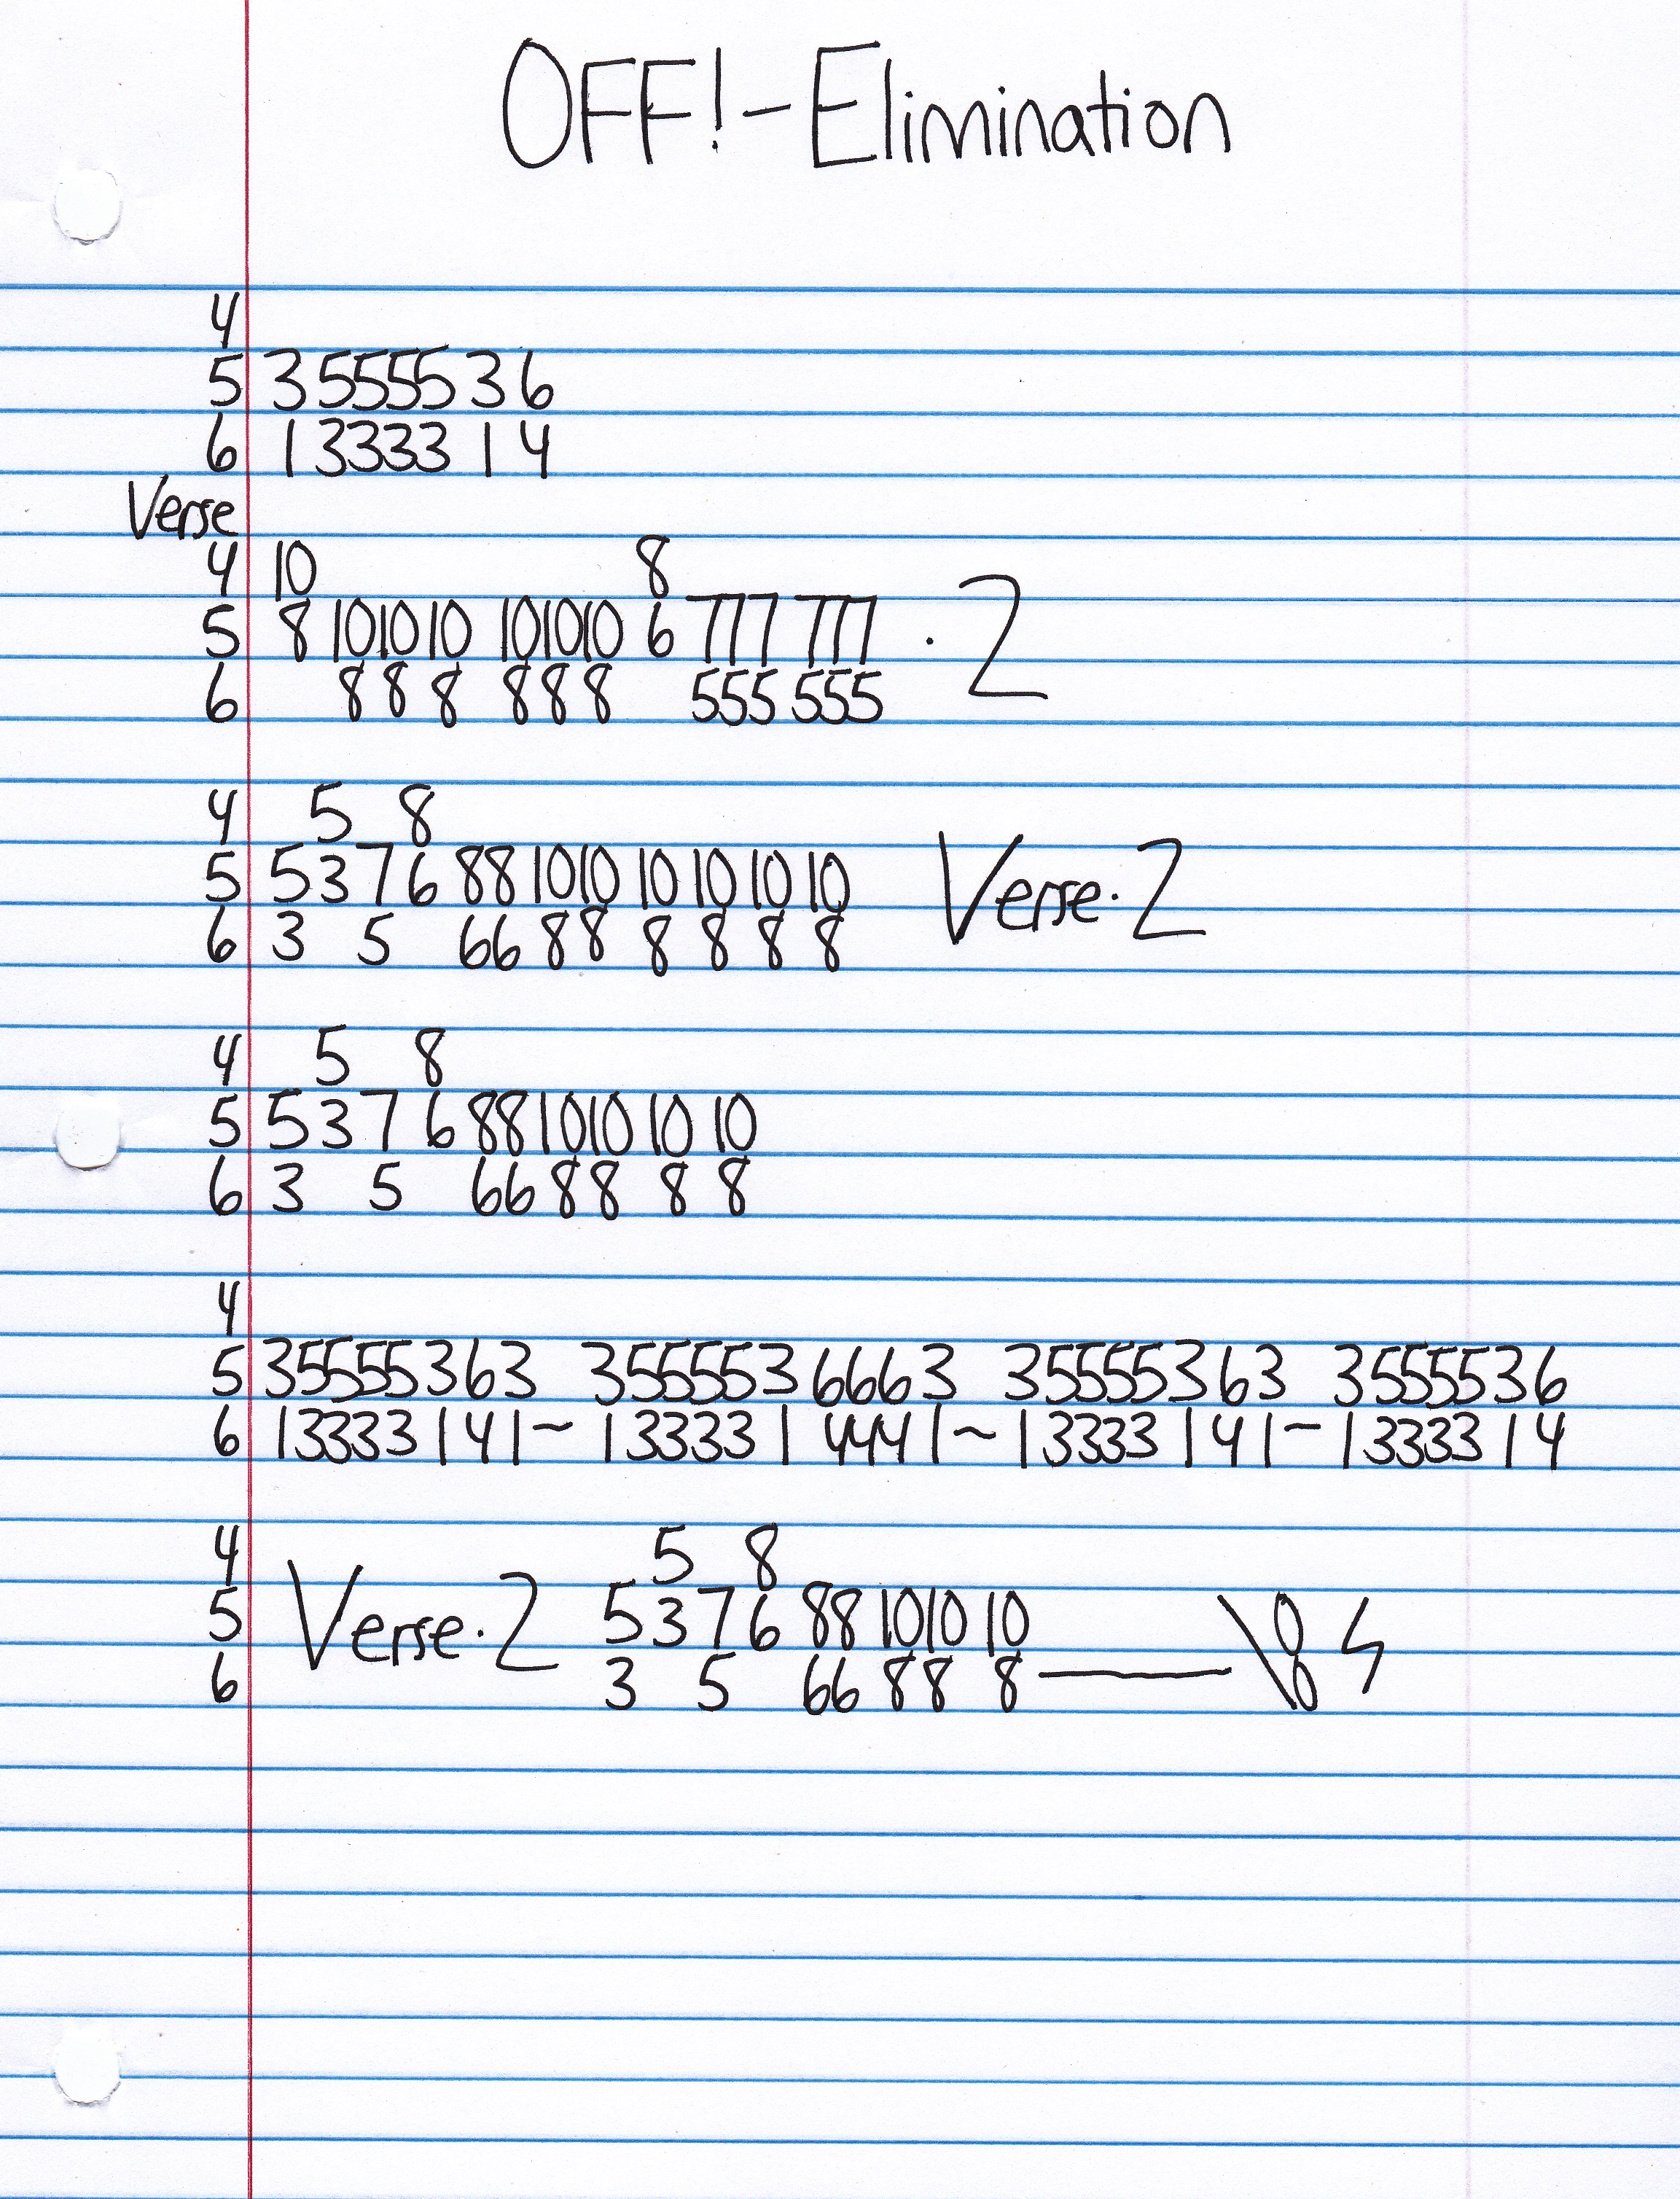 OFF! - Elimination
4
5 3 5555 3 6
6 1 3333 1 4
Verse
4 10 8
5 8 10 10 10 10 10 10 6 777 777 · 2
6 8 8 8 8 8 8 555 555
4 5 8
5 5 3 7 6 88 10 10 10 10 10 10 Verse · 2
6 3 5 66 88 8 8 8 8
4 5 8
5 5 3 7 6 88 10 10 10 10
6 3 5 66 88 8 8
4
5 35555363 355553 6663 35555363 3555536
6 13333141~ 133331 4441~ 13333141~ 1333314
4 5 8
5 Verse · 2 5 3 7 6 88 10 10 10
6 3 5 66 88 8